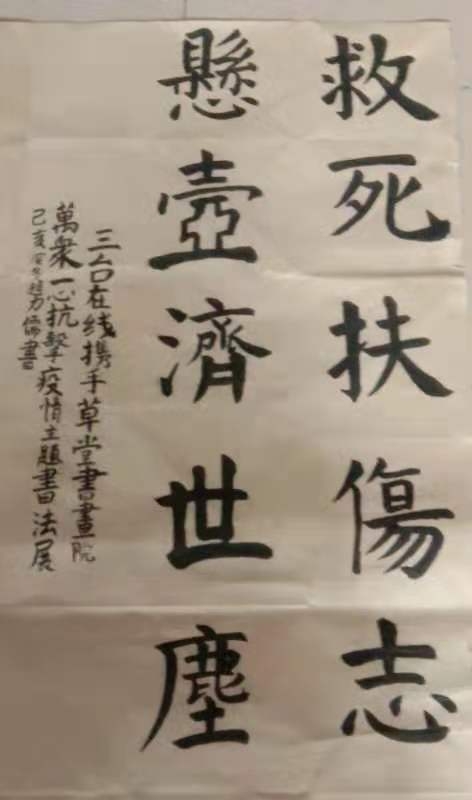 救死扶傷志
懸壺濟世塵
三台在线携手草堂書畫院
萬衆一心抗擊疫情主題書法展
己亥
書